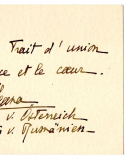 Trait d'union
ce et le cœur.
Ileana
v. Österreich
v. Rumänien.